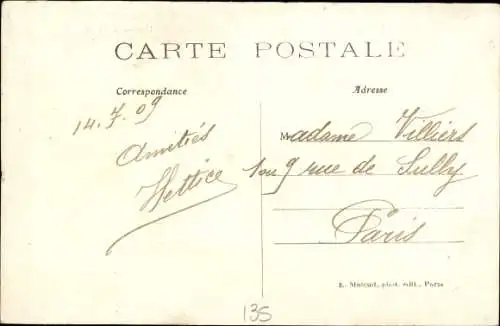 CARTE POSTALE
Correspondance
Adresse
14.7.09
Amitiés
Madame Villiers
1 ou 9 rue de Sully
Paris
phot. édit., Paris
135